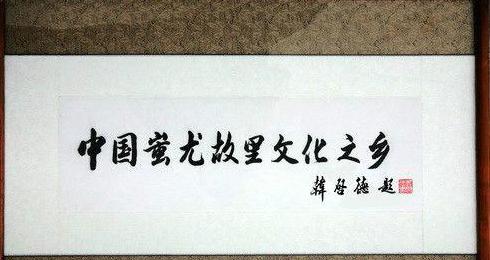 中国蚩尤故里文化之乡
韩启德题